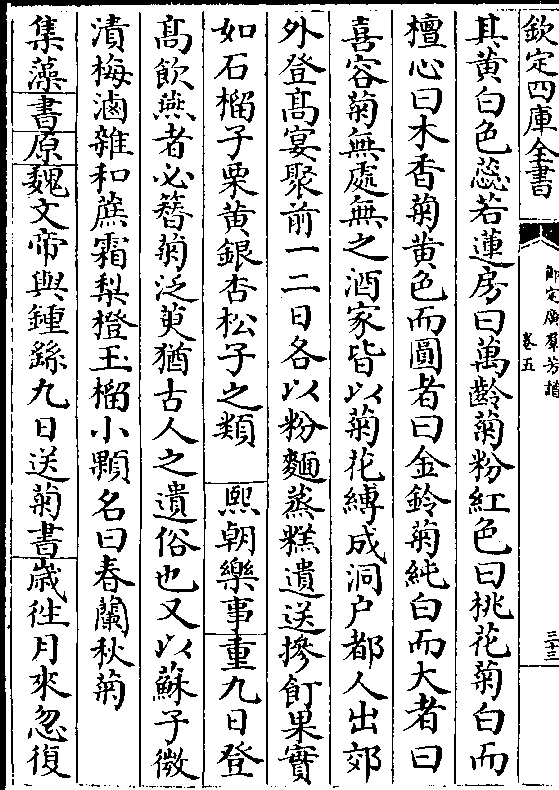 欽定四庫全書
御定廣羣芳譜
卷五
三十三
其黄白色蕊若蓮房曰萬齡菊粉紅色曰桃花菊白而
檀心曰木香菊黄色而圓者曰金鈴菊純白而大者曰
喜容菊無處無之酒家皆以菊花縛成洞户都人出郊
外登髙宴聚前一二日各以粉麵蒸糕遺送摻飣果實
如石榴子栗黄銀杏松子之類 熙朝樂事重九日登
髙飲燕者必簪菊泛萸猶古人之遺俗也又以蘇子微
漬梅滷雜和蔗霜梨橙玉榴小顆名曰春蘭秋菊
集藻書原魏文帝與鍾繇九日送菊書歲徃月來忽復